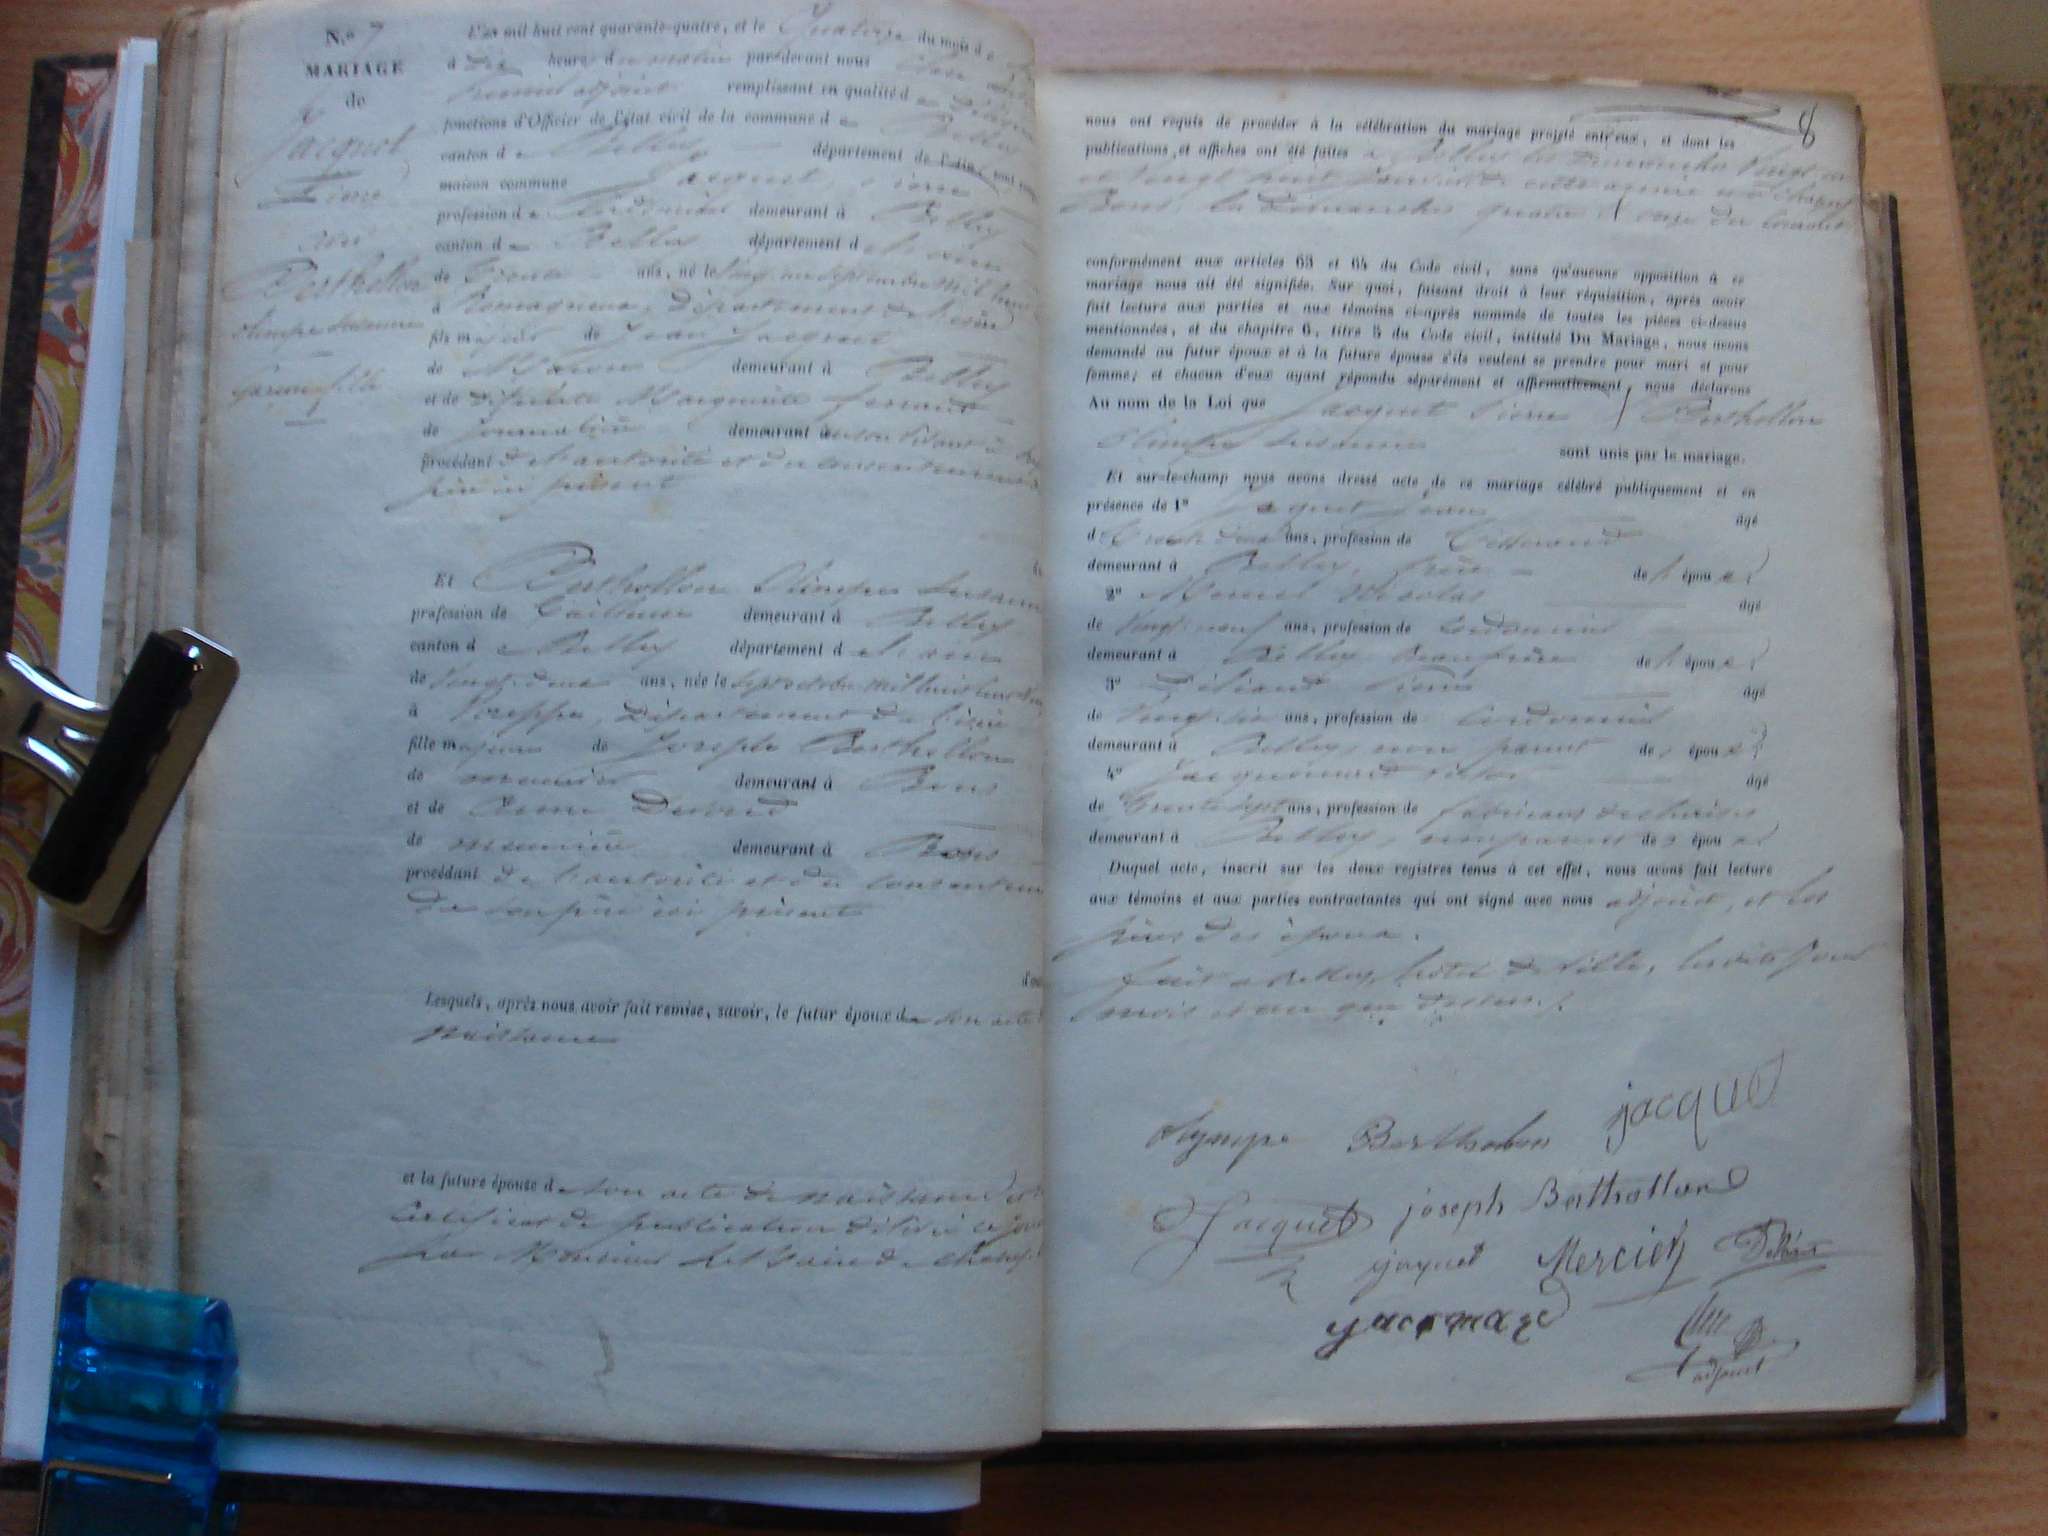 N.o 7
MARIAGE
de
Jacquet
Pierre
et
Berthollon
olimpe Susanne
garçon fille
L'an mil huit cent quarante-quatre, et le Quatorze du mois d
à dix heures du matin pardevant nous
premier adjoint remplissant en qualité d
fonctions d'Officier de l'état civil de la commune de Belley
canton de Belley département de l'Ain, sont
maison commune Jacquet Pierre
profession de Cordonnier demeurant à Belley
canton de Belley département de l'ain
de Trente ans, né le vingt un septembre mil huit
à Romagneux, Département de l'isère
fils majeur de Jean Jacquet
de Maçon demeurant à Belley
et de défunte Marguerite
de journalière demeurant de son vivant à
procédant de l'autorité et du consentement
père ici présent
Et Berthollon Olimpe Susanne
profession de Tailleuse demeurant à Belley
canton de Belley département de l'ain
de Vingt deux ans, née le sept octobre mil huit cent
à Voreppe, Département de l'isère
fille majeure de Joseph Berthollon
de meunier demeurant à Bons
et de Anne Durand
de meunière demeurant à Bons
procédant de l'autorité et du consentement
de son père ici présent
Lesquels, après nous avoir fait remise, savoir, le futur époux de son acte
naissance
et la future épouse de son acte de naissance et
Certificat de publication délivré ce jour
par Monsieur le Maire de
8
nous ont requis de procéder à la célébration du mariage projeté entr'eux, et dont les
publications, et affiches ont été faites à Belley les Dimanches vingt un
et vingt huit janvier de cette année et à
Bons, les Dimanches quatre et onze du courant
conformément aux articles 63 et 64 du Code civil, sans qu'aucune opposition à ce
mariage nous ait été signifiée. Sur quoi, faisant droit à leur réquisition, après avoir
fait lecture aux parties et aux témoins ci-après nommés de toutes les pièces ci-dessus
mentionnées, et du chapitre 6, titre 5 du Code civil, intitulé Du Mariage, nous avons
demandé au futur époux et à la future épouse s'ils veulent se prendre pour mari et pour
femme; et chacun d'eux ayant répondu séparément et affirmativement, nous déclarons
Au nom de la Loi que Jacquet Pierre et Berthollon
Olimpe Susanne sont unis par le mariage.
Et sur-le-champ nous avons dressé acte de ce mariage célébré publiquement et en
présence de 1o Jacquet Jean âgé
de trente deux ans, profession de Tisserand
demeurant à Belley, frère de l'époux
2o Nicolas âgé
de vingt neuf ans, profession de cordonnier
demeurant à Belley beaufrère de l'époux
3o Pierre âgé
de vingt six ans, profession de cordonnier
demeurant à Belley, non parent des époux
4o âgé
de Trente sept ans, profession de fabricant de chaises
demeurant à Belley, non parent des époux
Duquel acte, inscrit sur les deux registres tenus à cet effet, nous avons fait lecture
aux témoins et aux parties contractantes qui ont signé avec nous adjoint, et les
pères des époux.
fait à Belley, hôtel de ville, lesdits jour
mois et an que dessus.
Olympe Berthollon jacquet
Jacquet joseph Berthollon
jaquet Mercier
jacomard
adjoint